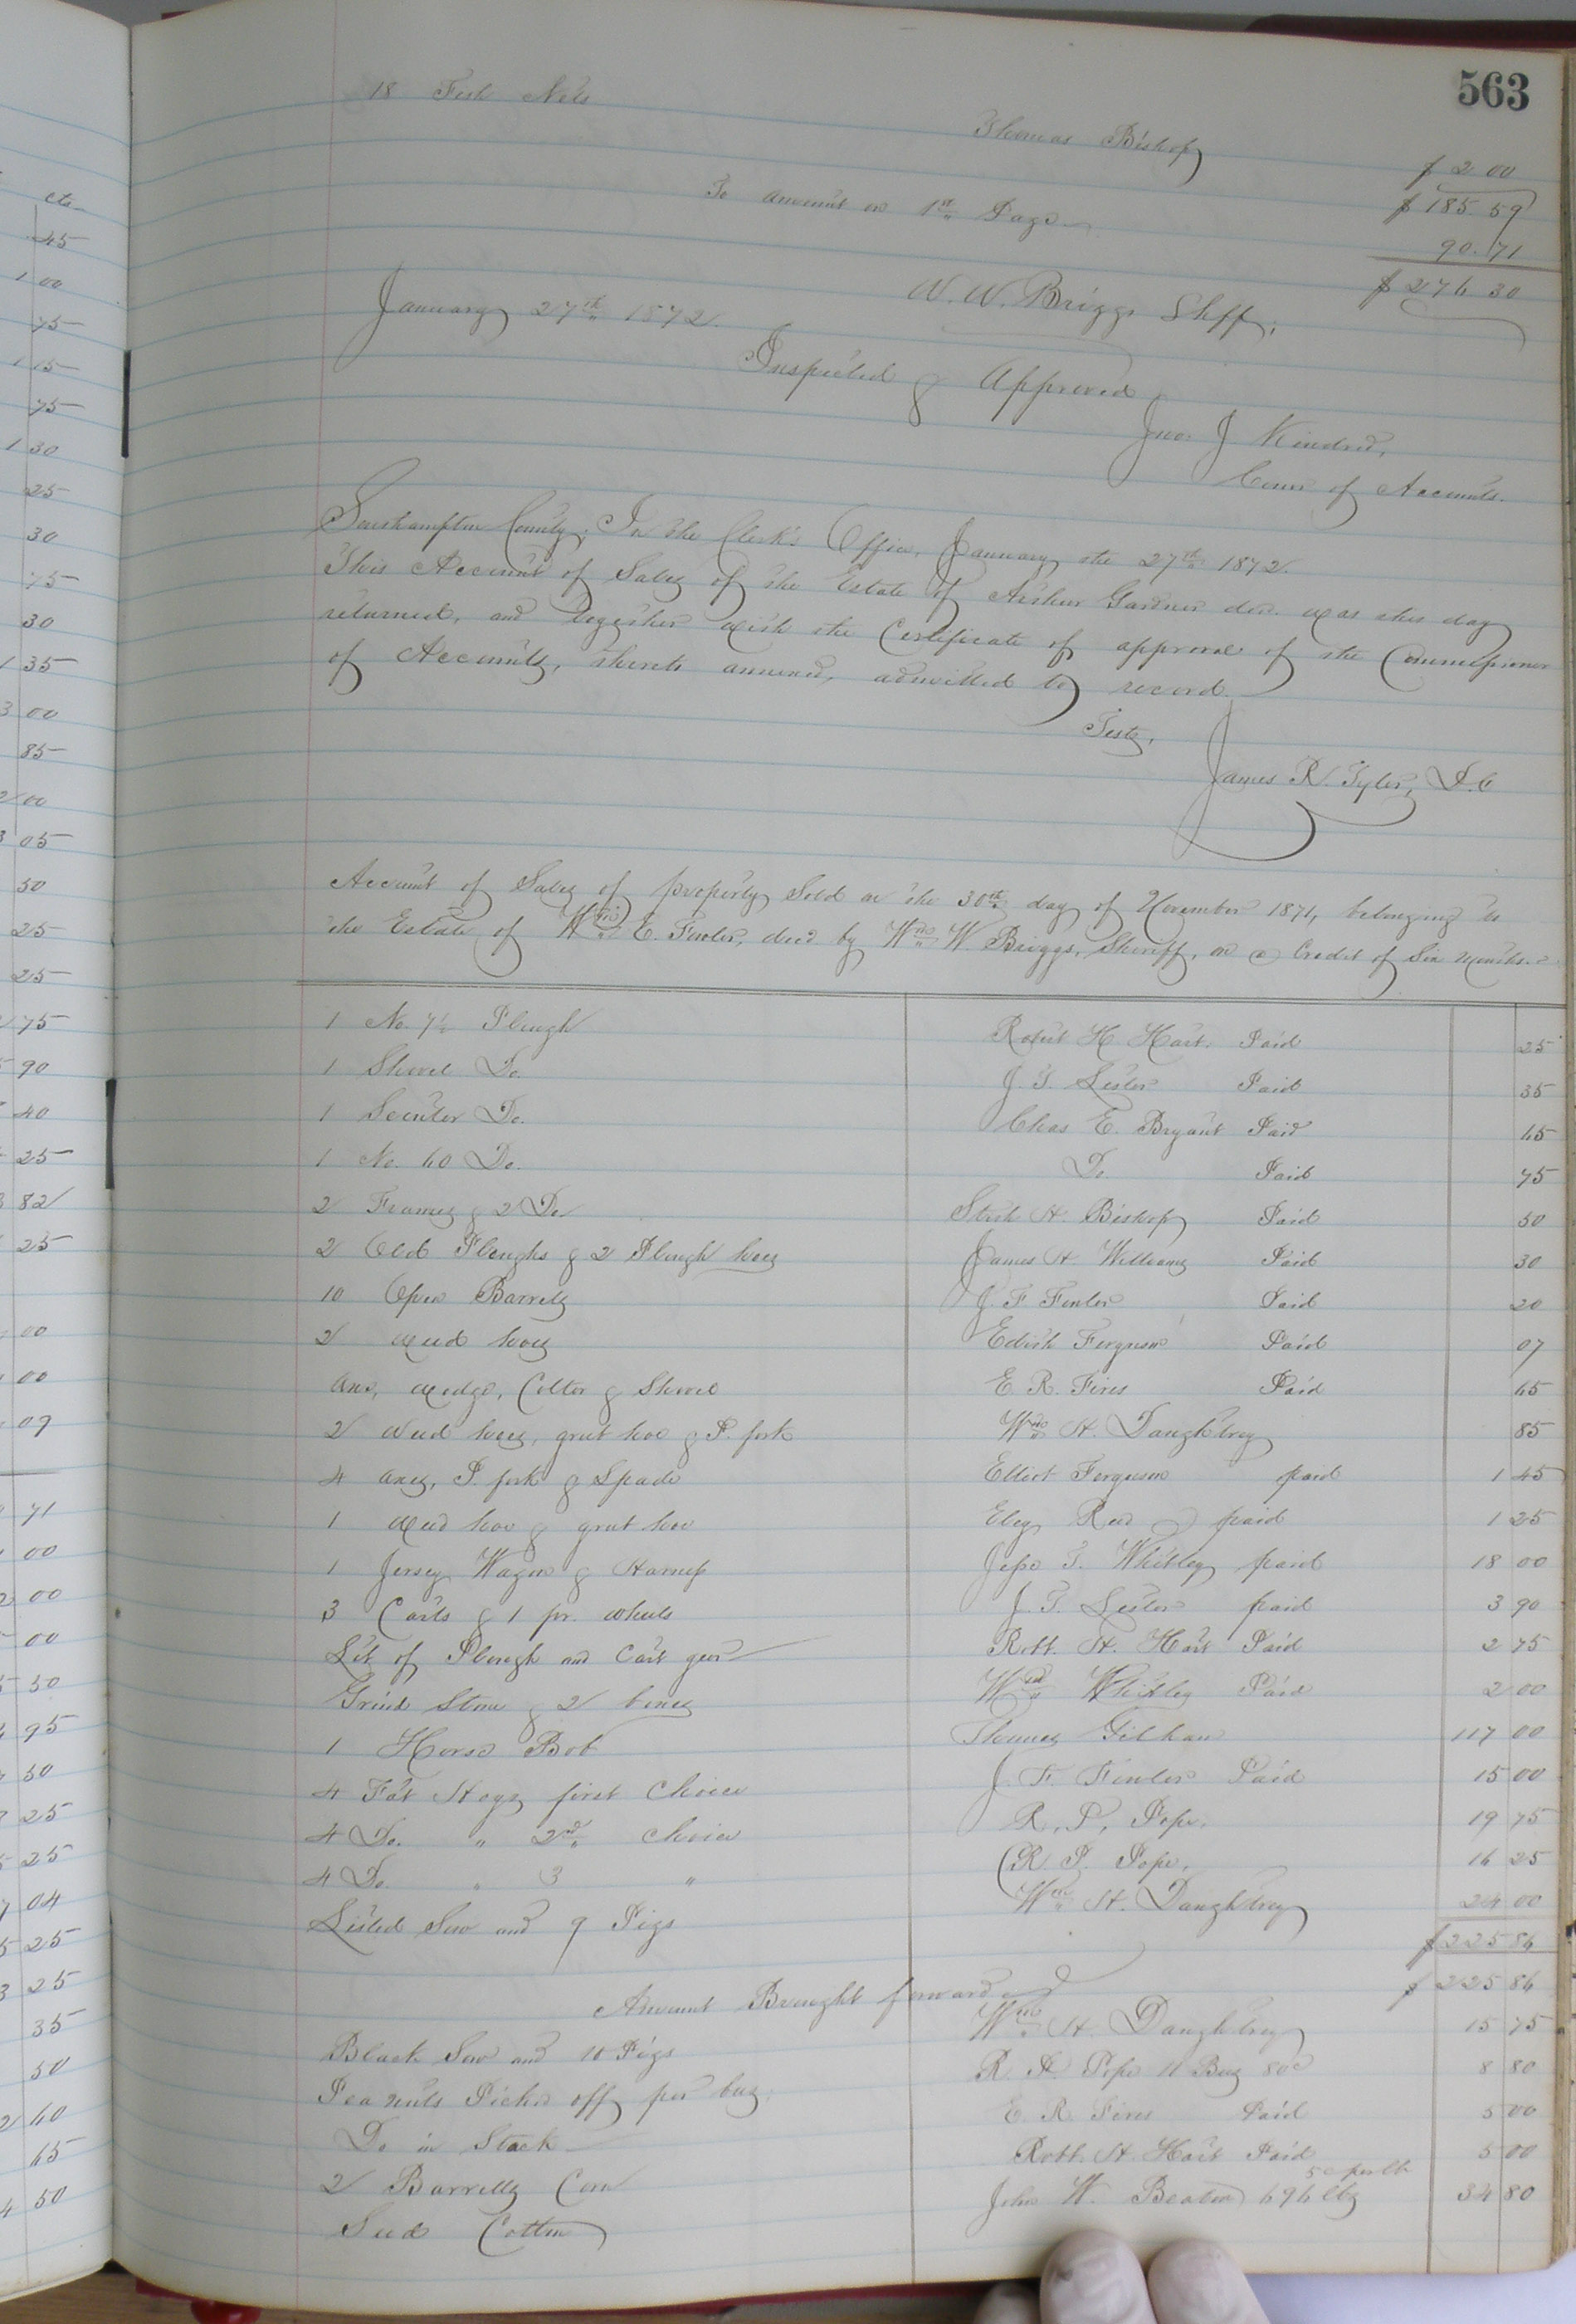 cts
45
1 00
75
1 15
75
1 30
25
30
75
30
1 35
3 00
85
2 00
3 05
50
25
25
75
90
40
25
82
25
00
00
09
71
00
00
00
50
95
50
25
25
04
25
25
35
50
2 60
65
4 50
563
18 Fish Nets Thomas Bishop $ 2 00
$ 185.59
To amount on 1st Page 90.71
$ 276 30
January 27th 1872. W. W. Briggs Shff;
Inspected & Approved
Jno. J Kindred,
Comr of Accounts.
Southampton County; In the Clerk's Office, January the 27th 1872.
This Account of Sales of the Estate of Arthur Gardner decd. was this day
returned, and together with the Certificate of approval of the Commissioner
of Accounts, thereto annexed, admitted to record.
Teste,
James R. Tyler, D.C
Account of Sales of property Sold on the 30th day of November 1871, belonging to
the Estate of Wm E. Fowler, decd by Wm W. Briggs, Sheriff, on a Credit of Six Months.
1 No. 7½ Plough Robert H Hart. Paid 25
1 Shovel Do. J. T. Lester Paid 35
1 Scouter Do. Chas E. Bryant Paid 65
1 No. 60 Do. Do Paid 75
2 Frames & 2 Do Seth H. Bishop Paid 50
2 Old Ploughs & 2 Plough hoes James H. Williams Paid 30
10 Open Barrels J. F Fowler Paid 20
2 weed hoes Ferguson Paid 07
Axe, wedge, Colter & Shovel E. R. Fires Paid 65
2 Weed hoes, grub hoe & P. fork Wm H. Daughtrey 85
4 axes, P. fork & Spade Elliot Ferguson paid 1 45
1 weed hoe & grub hoe paid 1 25
1 Jersey Wagon & Harness Jesse T. Whitley paid 18 00
3 Carts & 1 pr. wheels J. T. Lester paid 3 90
Lot of Plough and Cart gear Robt. H. Hart Paid 2 75
Grind Stone & 2 Wm Whitley Paid 2 00
1 Horse Bob Thomas 117 00
4 Fat Hogs first Choice J. F. Fowler Paid 15 00
4 Do. " 2nd choice R. P. Pope. 19 75
4 Do. " 3 " R. P. Pope. 16 25
Listed Sow and 9 Pigs Wm H. Daughtrey 24 00
$ 225 86
Amount Brought forward $ 225 86
Black Sow and 10 Pigs Wm H. Daughtrey 15 75
Pea nuts Picked off per bag. R. P. Pope 11 Bag 80c 8 80
Do in Stack E. R Fires Paid 5 00
2 Barrells Corn Robt. H. Hart Paid 5 00
Seed Cotton John W. Beaton 696 lbs 5c per lb 34 80